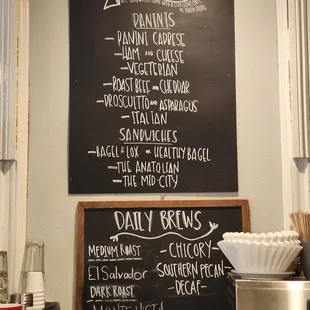 PANINIS
- PANINI CAPRESE
- HAM AND CHEESE
- VEGETERIAN
- ROAST BEEF AND CHEDDAR
- PROSCUITTO AND ASPARAGUS
- ITALIAN
SANDWICHES
- BAGEL & LOX OR HEALTHY BAGEL
- THE ANATOLIAN
- THE MID-CITY
DAILY BREWS
MEDIUM ROAST
El Salvador
DARK ROAST
MONTE VISTA
- CHICORY -
SOUTHERN PECAN
- DECAF -